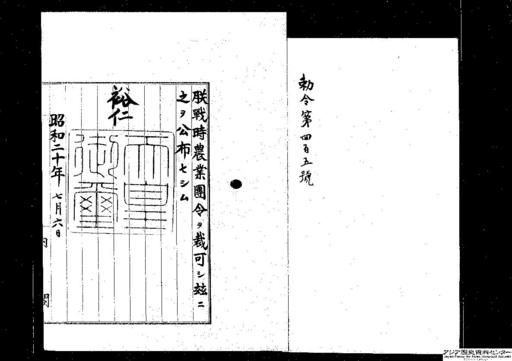 勅令第四百五號
朕戰時農業團令ヲ裁可シ玆ニ
之ヲ公布セシム
裕仁
天皇御璽
昭和二十年七月六日
内閣
アジア歴史資料センター